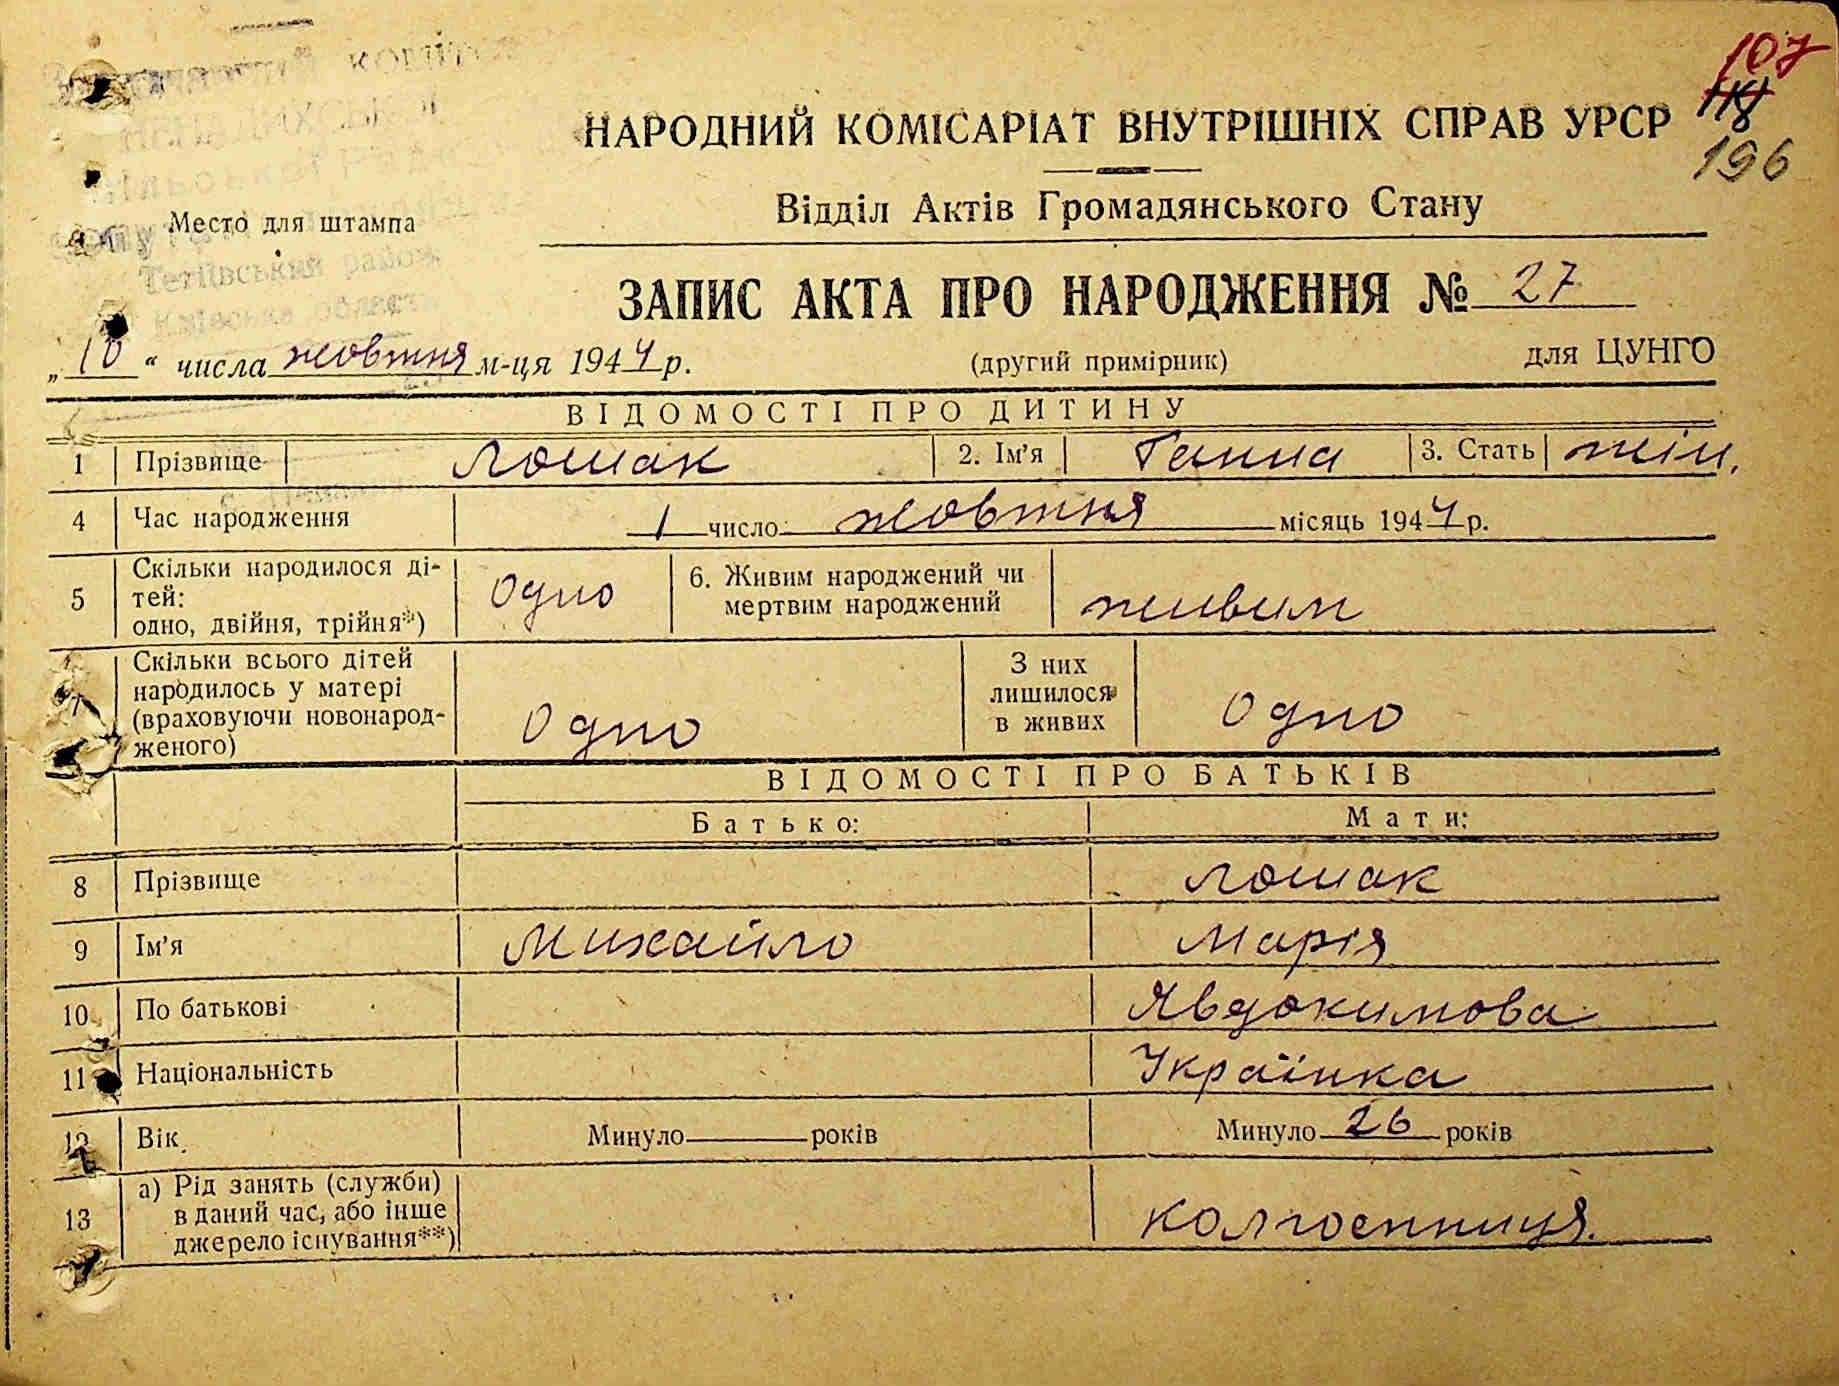 107
196
НАРОДНИЙ КОМІСАРІАТ ВНУТРІШНІХ СПРАВ УРСР
Відділ Актів Громадянського Стану
Место для штампа
Тетіївський район
Київська область
ЗАПИС АКТА ПРО НАРОДЖЕННЯ № 27
„10“ числа жовтня м-ця 1944 р.
(другий примірник)
для ЦУНГО
ВІДОМОСТІ ПРО ДИТИНУ
1 Прізвище Лошак 2. Ім'я Ганна 3. Стать жін.
4 Час народження 1 число жовтня місяць 1944 р.
5 Скільки народилося ді-
тей:
одно, двійня, трійня*) Одно 6. Живим народжений чи
мертвим народжений живим
7 Скільки всього дітей
народилось у матері
(враховуючи новонарод-
женого) Одно З них
лишилося
в живих Одно
ВІДОМОСТІ ПРО БАТЬКІВ
Батько: Мати:
8 Прізвище Лошак
9 Ім'я Михайло Марія
10 По батькові Явдокимова
11 Національність Українка
12 Вік Минуло років Минуло 26 років
13 а) Рід занять (служби)
в даний час, або інше
джерело існування**) колгоспниця.